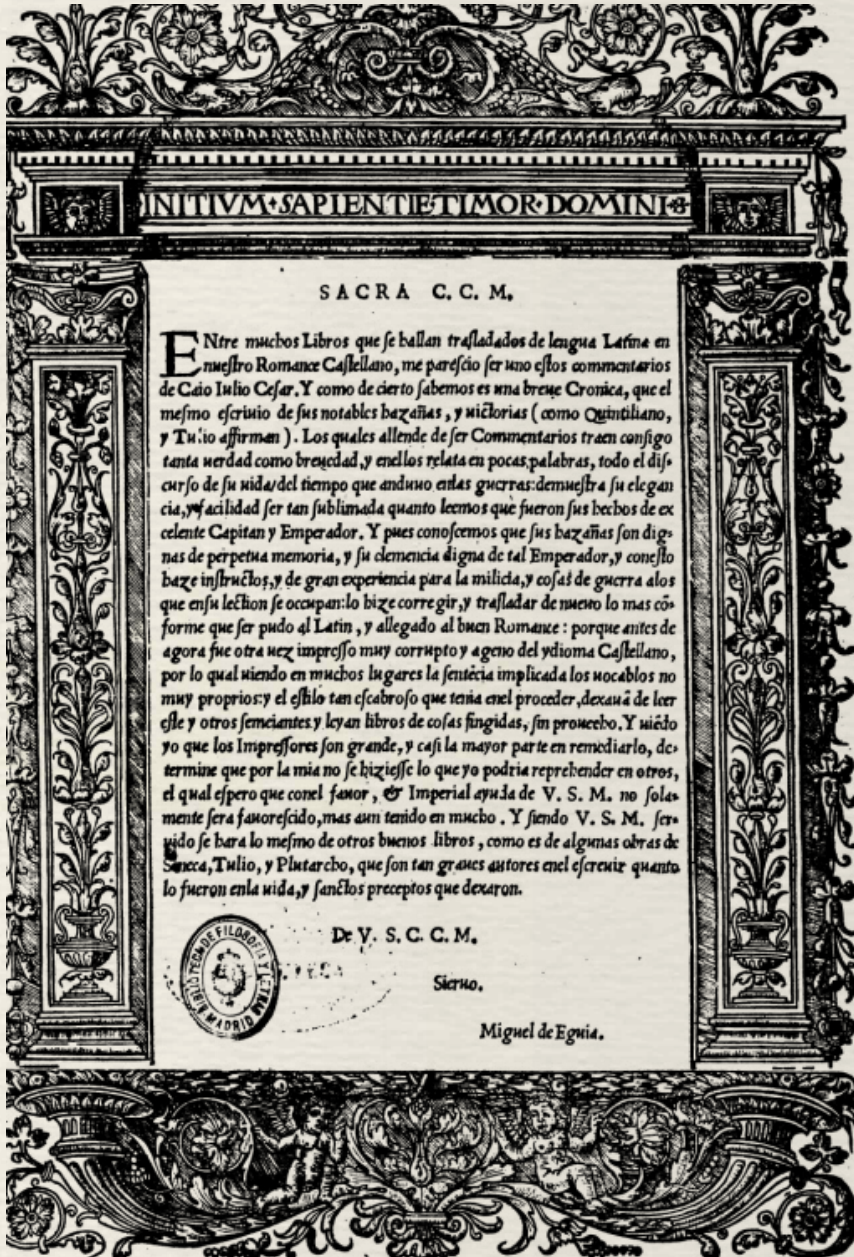 INITIVM SAPIENTIE TIMOR DOMINI
SACRA C. C. M.
ENtre muchos Libros que ſe hallan traſladados de lengua Latina en
nueſtro Romance Caſtellano, me pareſcio ſer uno eſtos commentarios
de Caio Iulio Ceſar. Y como de cierto ſabemos es una breue Cronica, que el
meſmo eſcriuio de ſus notables hazañas, y uictorias ( como Quintiliano,
y Tulio affirman ). Los quales allende de ſer Commentarios traen conſigo
tanta uerdad como breuedad, y enellos relata en pocas palabras, todo el diſ-
curſo de ſu uida/del tiempo que anduuo enlas guerras: demueſtra ſu elegan
cia, y facilidad ſer tan ſublimada quanto leemos que fueron ſus hechos de ex
celente Capitan y Emperador. Y pues conoſcemos que ſus hazañas ſon dig-
nas de perpetua memoria, y ſu clemencia digna de tal Emperador, y coneſto
haze inſtructos, y de gran experiencia para la milicia, y coſas de guerra alos
que enſu lection ſe occupan: lo hize corregir, y traſladar de nueuo lo mas cõ-
forme que ſer pudo al Latin, y allegado al buen Romance : porque antes de
agora fue otra uez impreſſo muy corrupto y ageno del ydioma Caſtellano,
por lo qual uiendo en muchos lugares la ſentẽcia implicada los uocablos no
muy proprios: y el eſtilo tan eſcabroſo que tenia enel proceder, dexauã de leer
eſte y otros ſemeiantes y leyan libros de coſas fingidas, ſin prouecho. Y uiẽdo
yo que los Impreſſores ſon grande, y caſi la mayor parte en remediarlo, de-
termine que por la mia no ſe hizieſſe lo que yo podria reprehender en otros,
el qual eſpero que conel fauor, & Imperial ayuda de V. S. M. no ſola-
mente ſera fauoreſcido, mas aun tenido en mucho . Y ſiendo V. S. M. ſer-
uido ſe hara lo meſmo de otros buenos libros, como es de algunas obras de
Seneca, Tulio, y Plutarcho, que ſon tan graues autores enel eſcreuir quanto
lo fueron enla uida, y ſanctos preceptos que dexaron.
De V. S. C. C. M.
Sieruo.
Miguel de Eguia.
BIBLIOTECA DE FILOSOFIA Y LETRAS
MADRID